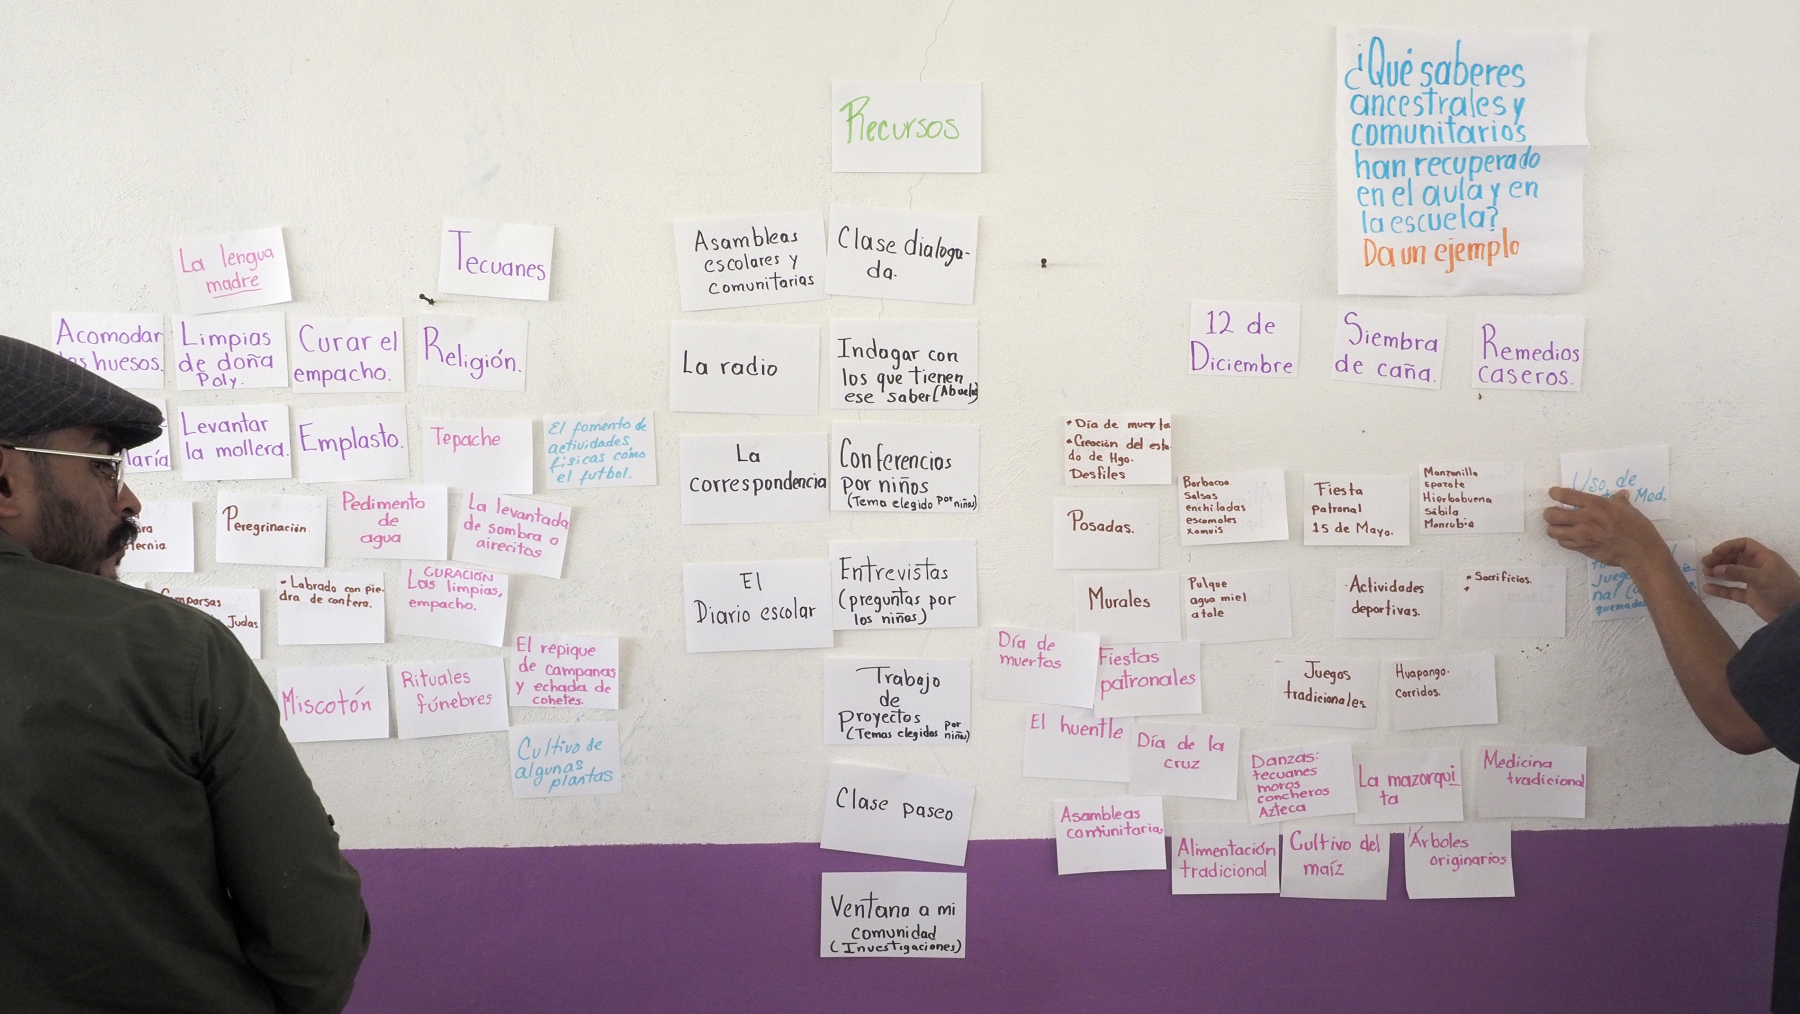 ¿Qué saberes
ancestrales y
comunitarios
han recuperado
en el aula y en
la escuela?
Da un ejemplo
Recursos
Asambleas
escolares y
comunitarias
Clase dialoga-
da.
La radio
Indagar con
los que tienen
ese saber (Abuelos)
La
correspondencia
Conferencias
Por niños
(Tema elegido por niños)
El
Diario escolar
Entrevistas
(preguntas por
los niños)
Trabajo
de
Proyectos
(Temas elegidos por niños)
Clase paseo
Ventana a mi
comunidad
(Investigaciones)
La lengua
madre
Tecuanes
Acomodar
huesos.
Limpias
de doña
Poly.
Curar el
empacho.
Religión.
Levantar
la mollera.
Emplasto.
Tepache
El fomento de
actividades
físicas como
el futbol.
Peregrinación.
Pedimento
de
agua
La levantada
de sombra o
airecitos
Comparsas
Judas
• Labrado con pie-
dra de cantera.
CURACIÓN
Las limpias,
empacho.
Miscotón
Rituales
fúnebres
El repique
de campanas
y echada de
cohetes.
Cultivo de
algunas
plantas
12 de
Diciembre
Siembra
de caña.
Remedios
caseros.
• Día de muertos
• Creación del esta-
do de Hgo.
Desfiles
Barbacoa
Salsas
enchiladas
escamoles
xamuis
Fiesta
patronal
15 de Mayo.
Manzanilla
epazote
Hierbabuena
Sábila
Manrubia
Uso de
Med.
Posadas.
Murales
Pulque
agua miel
atole
Actividades
deportivas.
• Sacrificios.
•
Día de
muertos
Fiestas
patronales
Juegos
tradicionales.
Huapango.
Corridos.
El huentle
Día de la
cruz
Danzas:
tecuanes
moros
concheros
Azteca
La mazorqui
ta
Medicina
tradicional
Asambleas
comunitarias
Alimentación
tradicional
Cultivo del
maíz
Árboles
originarios